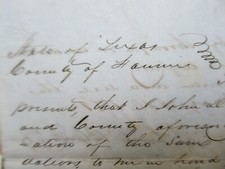 State of Texas
County of Fannin
presents that I John
and County aforesa
ation of the Sum
dollars to me in hand